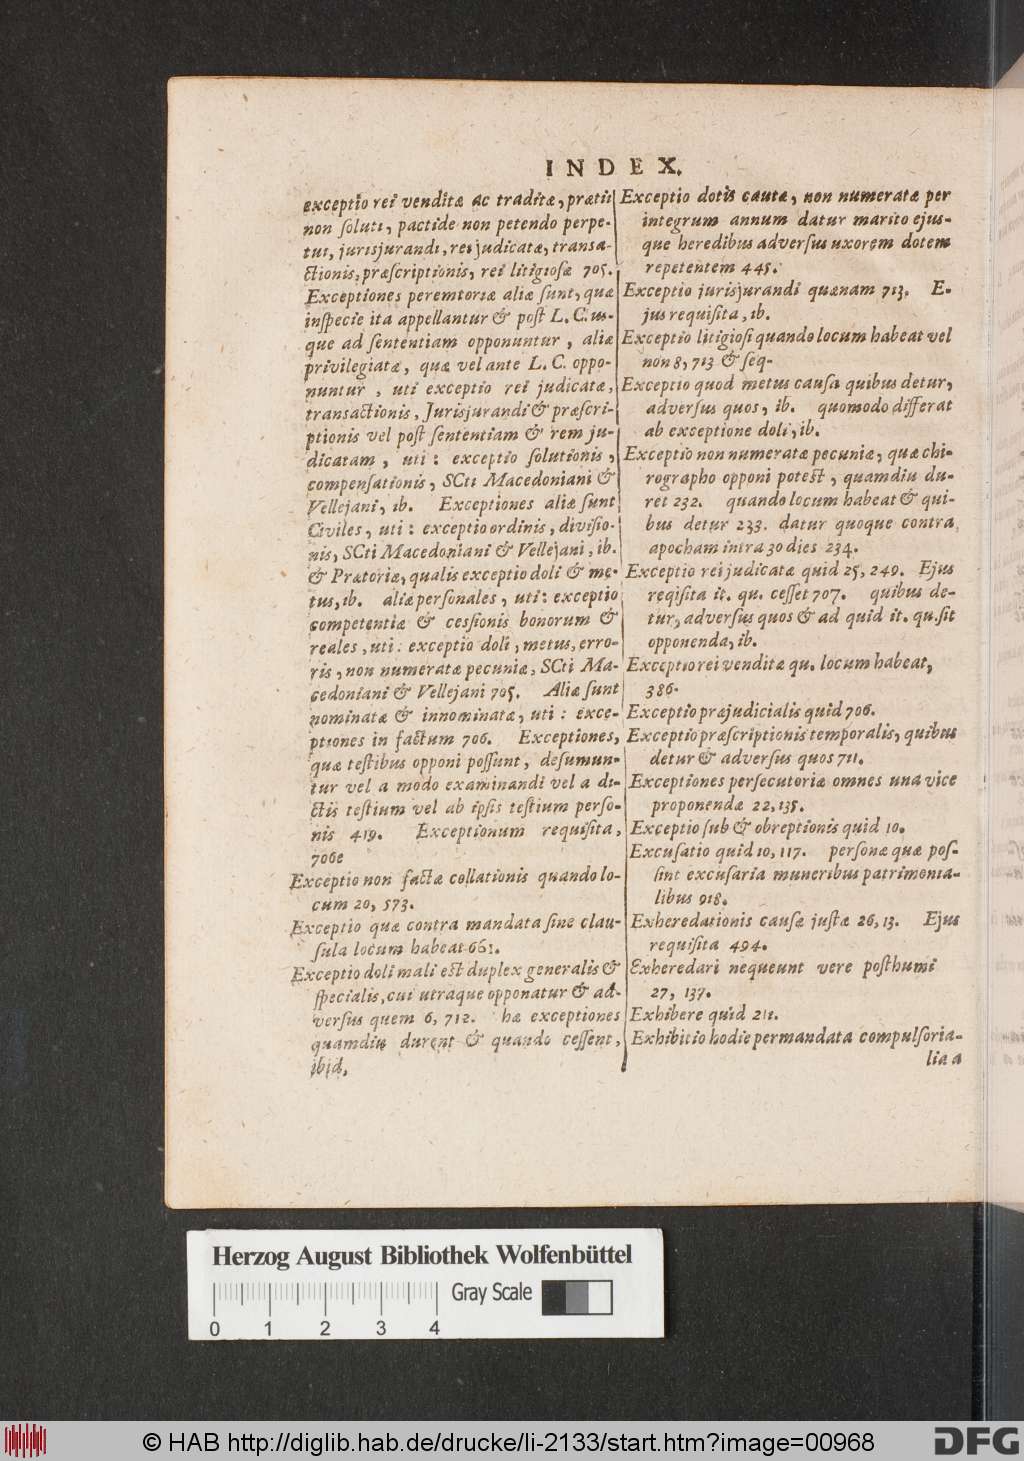 INDEX.
exceptio rei venditæ ac traditæ, prætii
non soluti, pacti de non petendo perpe-
tui, jurisjurandi, rei judicatæ, transa-
ctionis, præscriptionis, rei litigiosæ 705.
Exceptiones peremtoriæ aliæ sunt, quæ
inspecie ita appellantur & post L. C. us-
que ad sententiam opponuntur, aliæ
privilegiatæ, quæ vel ante L. C. oppo-
nuntur, uti exceptio rei judicatæ,
transactionis, Jurisjurandi & præscri-
ptionis vel post sententiam & rem ju-
dicatam, uti: exceptio solutionis,
compensationis, SCti Macedoniani &
Vellejani, ib. Exceptiones aliæ sunt
Civiles, uti: exceptio ordinis, divisio-
nis, SCti Macedoniani & Vellejani, ib.
& Prætoriæ, qualis exceptio doli & me-
tus, ib. aliæ personales, uti: exceptio
competentiæ & cessionis bonorum &
reales, uti: exceptio doli, metus, erro-
ris, non numeratæ pecuniæ, SCti Ma-
cedoniani & Vellejani 705. Aliæ sunt
nominatæ & innominatæ, uti: exce-
ptiones in factum 706. Exceptiones,
quæ testibus opponi possunt, desumun-
tur vel a modo examinandi vel a di-
ctis testium vel ab ipsis testium perso-
nis 419. Exceptionum requisita,
706e
Exceptio non factæ collationis quando lo-
cum 20, 573.
Exceptio quæ contra mandata sine clau-
sula locum habeat 661.
Exceptio doli mali est duplex generalis &
specialis, cui utraque opponatur & ad-
versus quem 6, 712. hæ exceptiones
quamdiu durent & quando cessent,
ibid,
Exceptio dotis cautæ, non numeratæ per
integrum annum datur marito ejus-
que heredibus adversus uxorem dotem
repetentem 445.
Exceptio jurisjurandi quænam 713. E-
jus requisita, ib.
Exceptio litigiosi quando locum habeat vel
non 8, 713 & seq.
Exceptio quod metus causa quibus detur,
adversus quos, ib. quomodo differat
ab exceptione doli, ib.
Exceptio non numeratæ pecuniæ, quæ chi-
rographo opponi potest, quamdiu du-
ret 232. quando locum habeat & qui-
bus detur 233. datur quoque contra
apocham intra 30 dies 234.
Exceptio rei judicatæ quid 25, 249. Ejus
reqisita it. qu. cesset 707. quibus de-
tur, adversus quos & ad quid it. qu. sit
opponenda, ib.
Exceptio rei venditæ qu. locum habeat,
386.
Exceptio præjudicialis quid 706.
Exceptio præscriptionis temporalis, quibus
detur & adversus quos 711.
Exceptiones persecutoriæ omnes una vice
proponendæ 22, 135.
Exceptio sub & obreptionis quid 10.
Excusatio quid 10, 117. personæ quæ pos-
sint excusaria muneribus patrimonia-
libus 918.
Exheredationis causæ justæ 26, 13. Ejus
requisita 494.
Exheredari nequeunt vere posthumi
27, 137.
Exhibere quid 211.
Exhibitio hodie per mandata compulsoria-
lia a
Herzog August Bibliothek Wolfenbüttel
Gray Scale
0 1 2 3 4
© HAB http://diglib.hab.de/drucke/li-2133/start.htm?image=00968
DFG